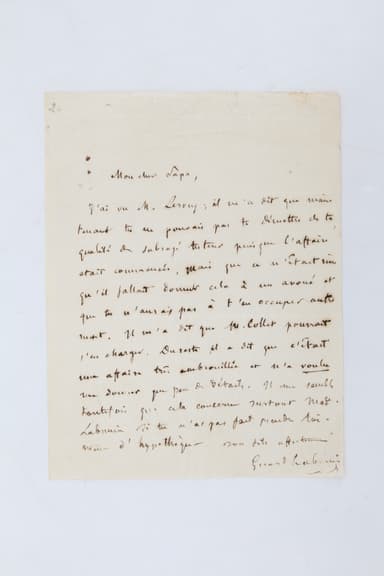 Mon cher Papa,
J'ai vu M. Leroy; il m'a dit que main
tenant tu ne pouvais pas te démettre de ta
qualité de subrogé tuteur puisque l'affaire
était commencée, mais que ce n'était rien
qu'il fallait donner cela à un avoué et
que tu n'aurais pas à t'en occuper autre
ment. Il m'a dit que M. Collet pourrait
s'en charger. Du reste il a dit que c'était
une affaire très embrouillée et n'a voulu
me donner que peu de détails. Il me semble
toutefois que cela concerne surtout Mad.
Labrunie si tu n'as pas fait prendre
d'hypothèque ton fils affectionné
Gérard Labrunie